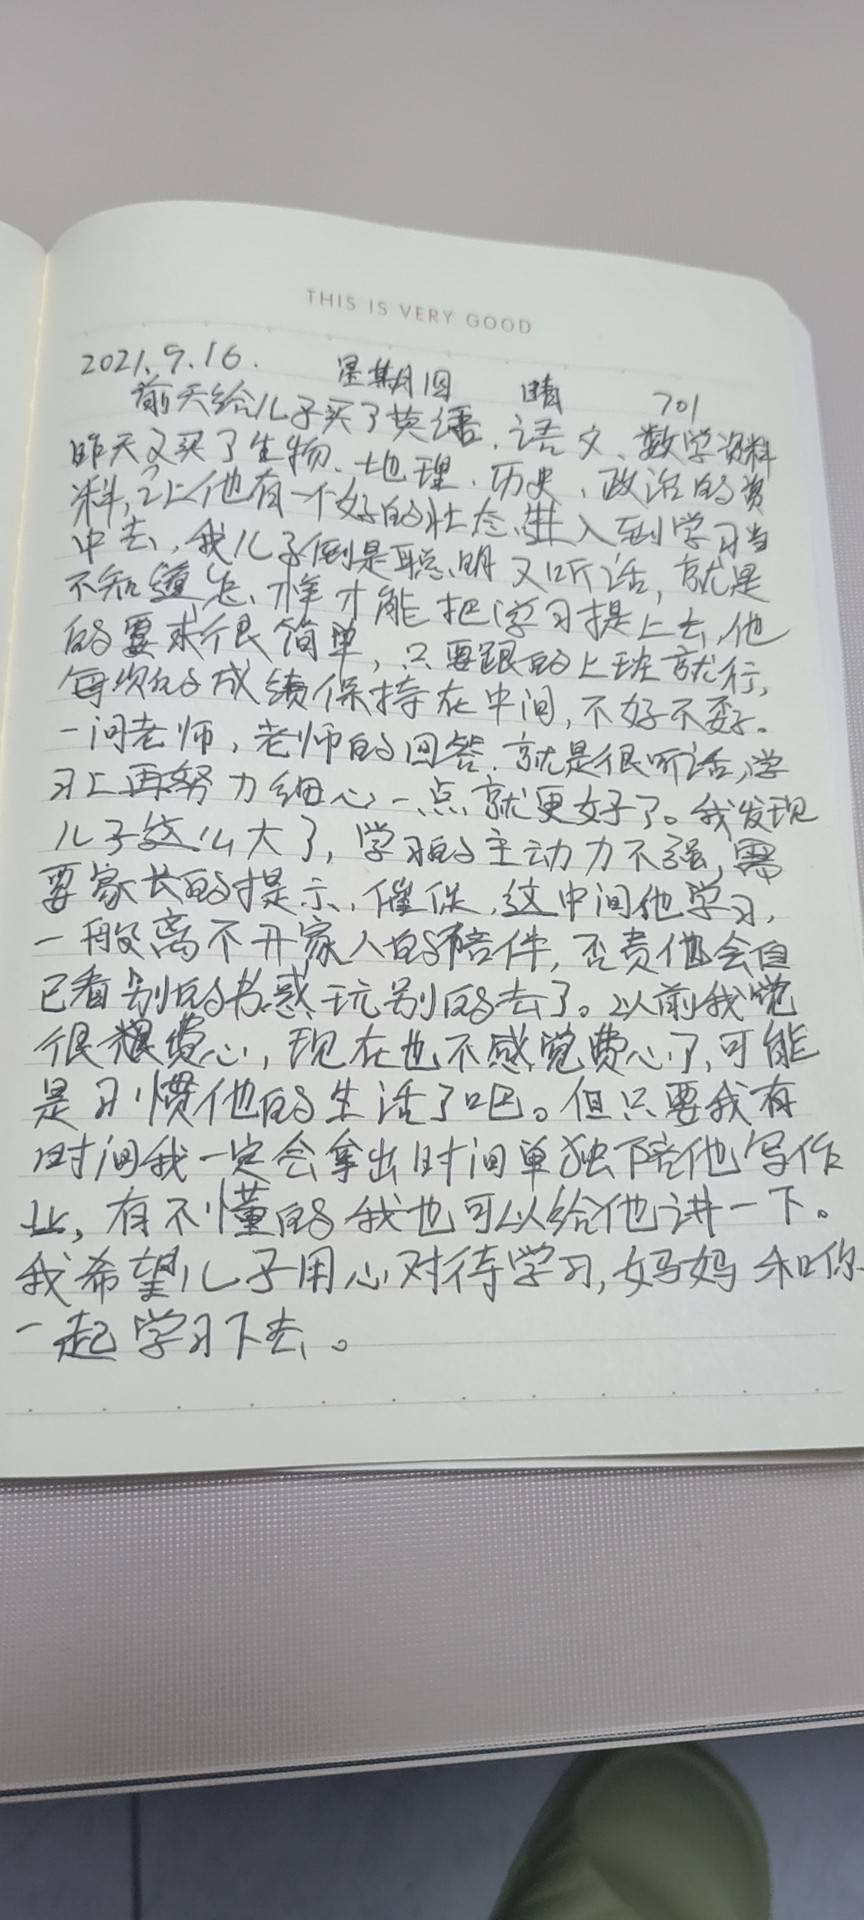 THIS IS VERY GOOD
2021.9.16. 星期四 晴 701
前天给儿子买了英语、语文、数学资料
昨天又买了生物、地理、历史、政治的资
料,让他有一个好的状态、进入到学习当
中去,我儿子倒是聪明又听话,就是
不知道怎样才能把学习提上去,他
的要求很简单,只要跟的上班就行,
每次的成绩保持在中间,不好不孬。
一问老师,老师的回答,就是很听话,学
习上再努力细心一点就更好了。我发现
儿子这么大了,学习的主动力不强,需
要家长的提示、催促,这中间他学习,
一般离不开家人的陪伴,否责他会自
已看别的书惑玩别的去了。以前我觉
很费心,现在也不感觉费心了,可能
是习惯他的生活了吧。但只要我有
时间我一定会拿出时间单独陪他写作
业,有不懂的我也可以给他讲一下。
我希望儿子用心对待学习,妈妈和你
一起学习下去。